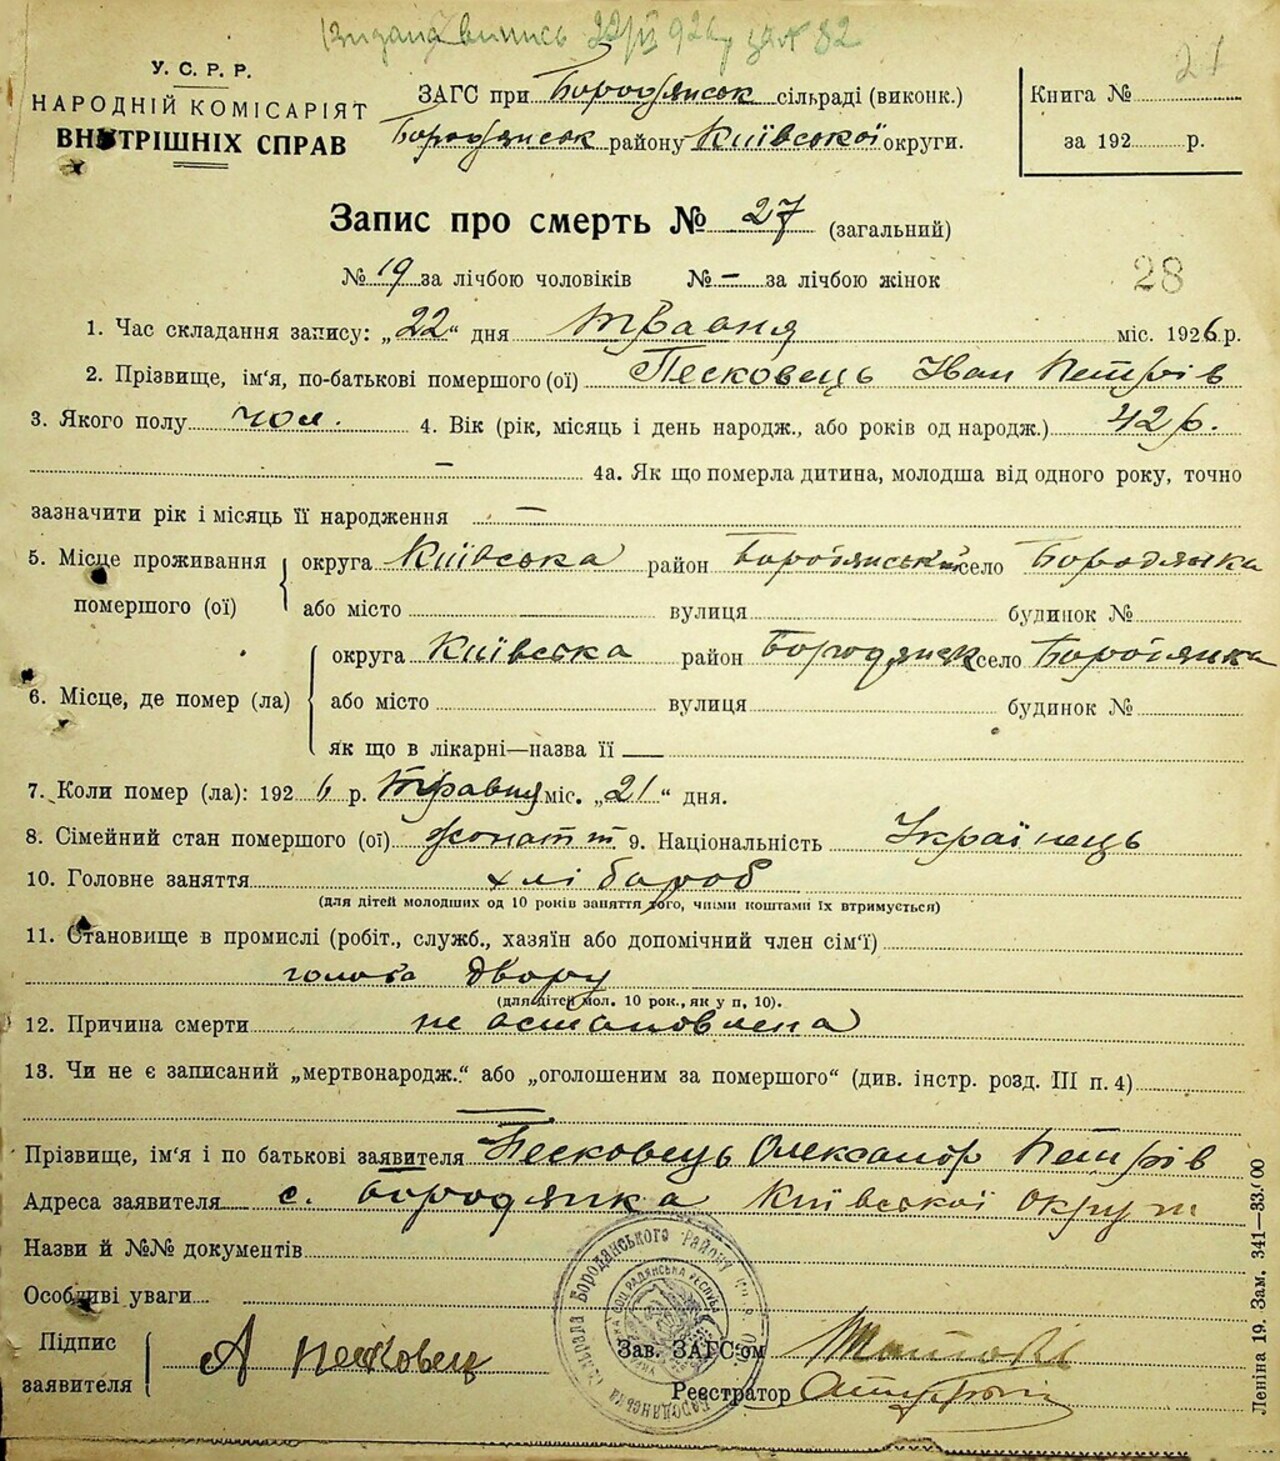 Видана виписъ 22/VI 926 р за № 82
21
У. С. Р. Р.
НАРОДНІЙ КОМІСАРІЯТ
ВНУТРІШНІХ СПРАВ
ЗАГС при Бородянськ сільраді (виконк.)
Бородянськ району Київської округи.
Книга №
за 192 р.
Запис про смерть № 27 (загальний)
№ 19 за лічбою чоловіків № – за лічбою жінок
28
1. Час складання запису: „22“ дня травня міс. 1926 р.
2. Прізвище, ім‘я, по-батькові помершого (ої) Песковець Іван Петрів
3. Якого полу чол. 4. Вік (рік, місяць і день народж., або років од народж.) 42 р.
– 4а. Як що померла дитина, молодша від одного року, точно
зазначити рік і місяць її народження –
5. Місце проживання помершого (ої) округа Київська район Бородянський село Бородянка
або місто вулиця будинок №
6. Місце, де помер (ла) округа Київська район Бородянськ село Бородянка
або місто вулиця будинок №
як що в лікарні—назва її —
7. Коли помер (ла): 1926 р. Травня міс. „21“ дня.
8. Сімейний стан помершого (ої) жонат 9. Національність Українець
10. Головне заняття хлібароб
(для дітей молодших од 10 років заняття того, чиїми коштами їх втримується)
11. Становище в промислі (робіт., служб., хазяїн або допомічний член сім‘ї)
голова двору
(для дітей мол. 10 рок., як у п, 10).
12. Причина смерти не астановлена
13. Чи не є записаний „мертвонародж.“ або „оголошеним за помершого“ (див. інстр. розд. III п. 4)
—
Прізвище, ім‘я і по батькові заявителя Песковець Олександр Петрів
Адреса заявителя с. Бородянка Київської Округи
Назви й №№ документів
Особливі уваги
Підпис заявителя А Песковец
Зав. ЗАГС‘ом
Реєстратор
Бородянського Району
Бородянська
Леніна 19. Зам. 341—33.000